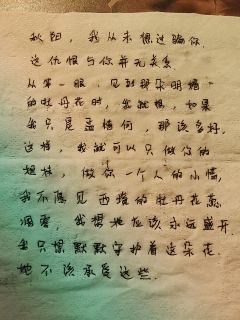 秋阳，我从未想过骗你.
这仇恨与你并无关系
从第一眼，见到那朵明媚
的牡丹花时，我就想，如果
我只是孟楷何，那该多好.
这样，我就可以只做你的
楷楷，做你一个人的小情，
我不愿见 西璇的牡丹花蔫
凋零，我想她应该永远盛开.
我只想默默守护着这朵花.
她不该承受这些.